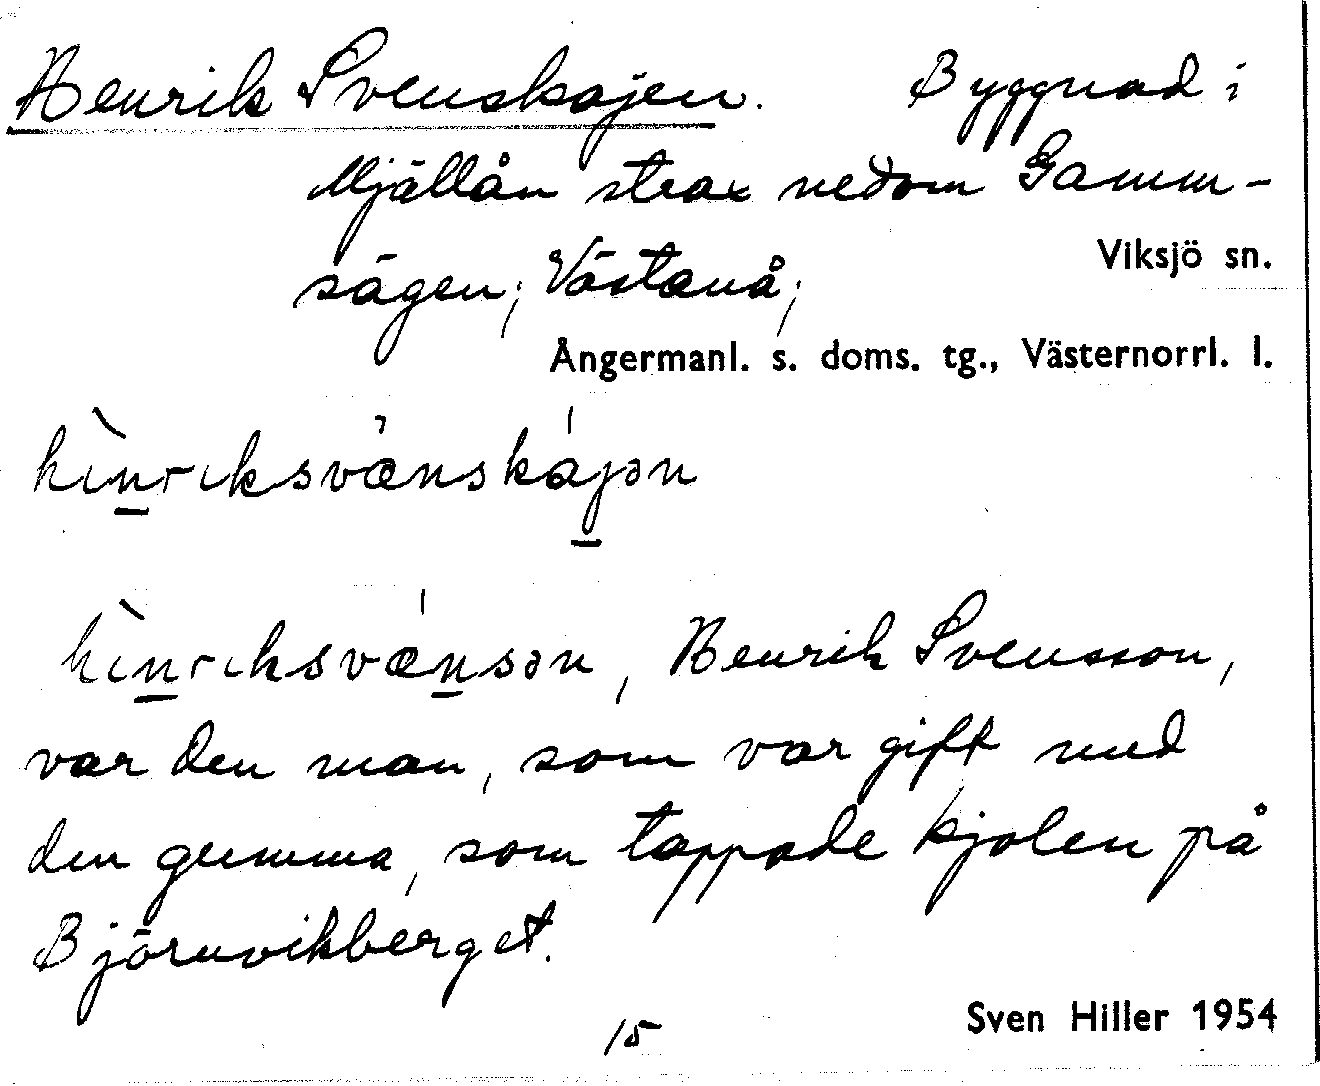 Henrik Svenskajen. Byggnad i
Mjällån strax nedom Gamm-
sågen; Västanå; Viksjö sn.
Ångermanl. s. doms. tg., Västernorrl. l.
hìn̲riksvænskájə̲n
hìn̲riksvæn̲sən, Henrik Svensson,
var den man, som var gift med
den gumma, som tappade kjolen på
Björnvikberget.
15 Sven Hiller 1954